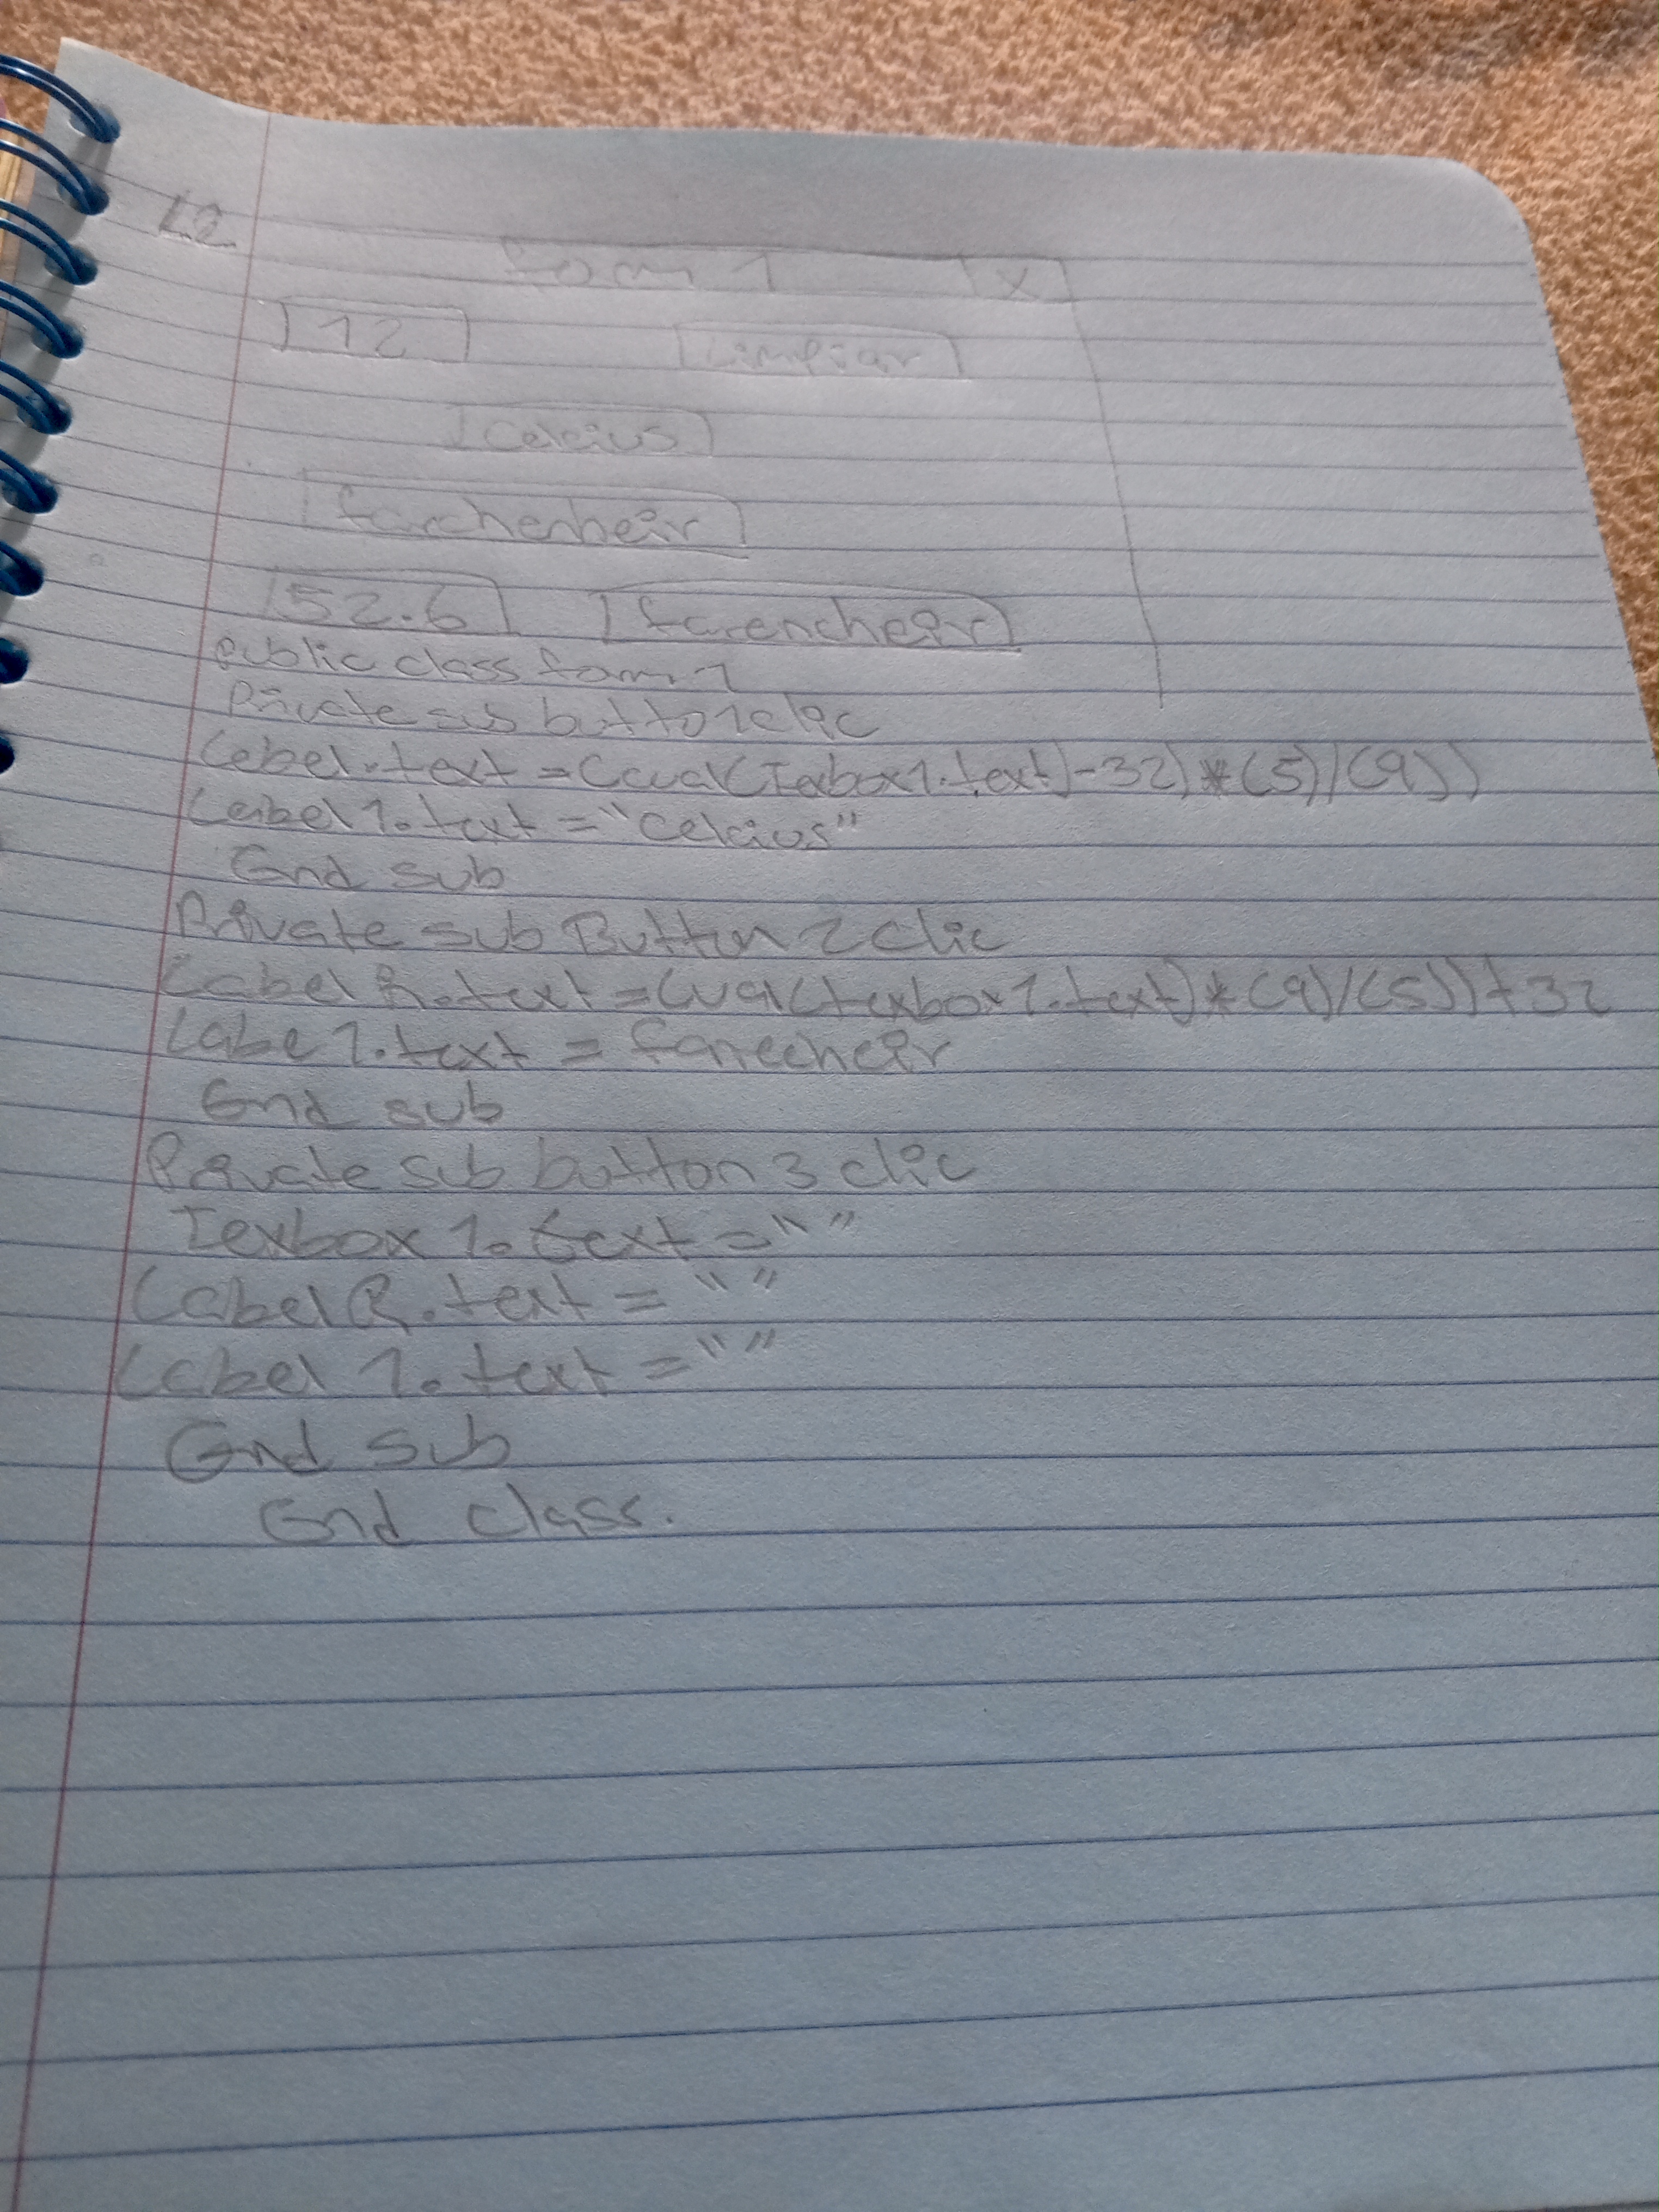 L2
form 1 X
12 Limpiar
Celcius
farchenheir
52.6 farencheir
Public class form 1
Private sub butto1clic
Lebel.text = ((val(Texbox1.text)-32)*(5)/(9))
Label1.text = "Celcius"
End sub
Private sub Button 2 clic
Label R.text = (val(texbox1.text)*(9)/(5))+32
Labe 1.text = farecheir
End sub
Private sub button 3 clic
Texbox 1.text = " "
Label R.text = " "
Label 1.text = " "
End sub
End class.